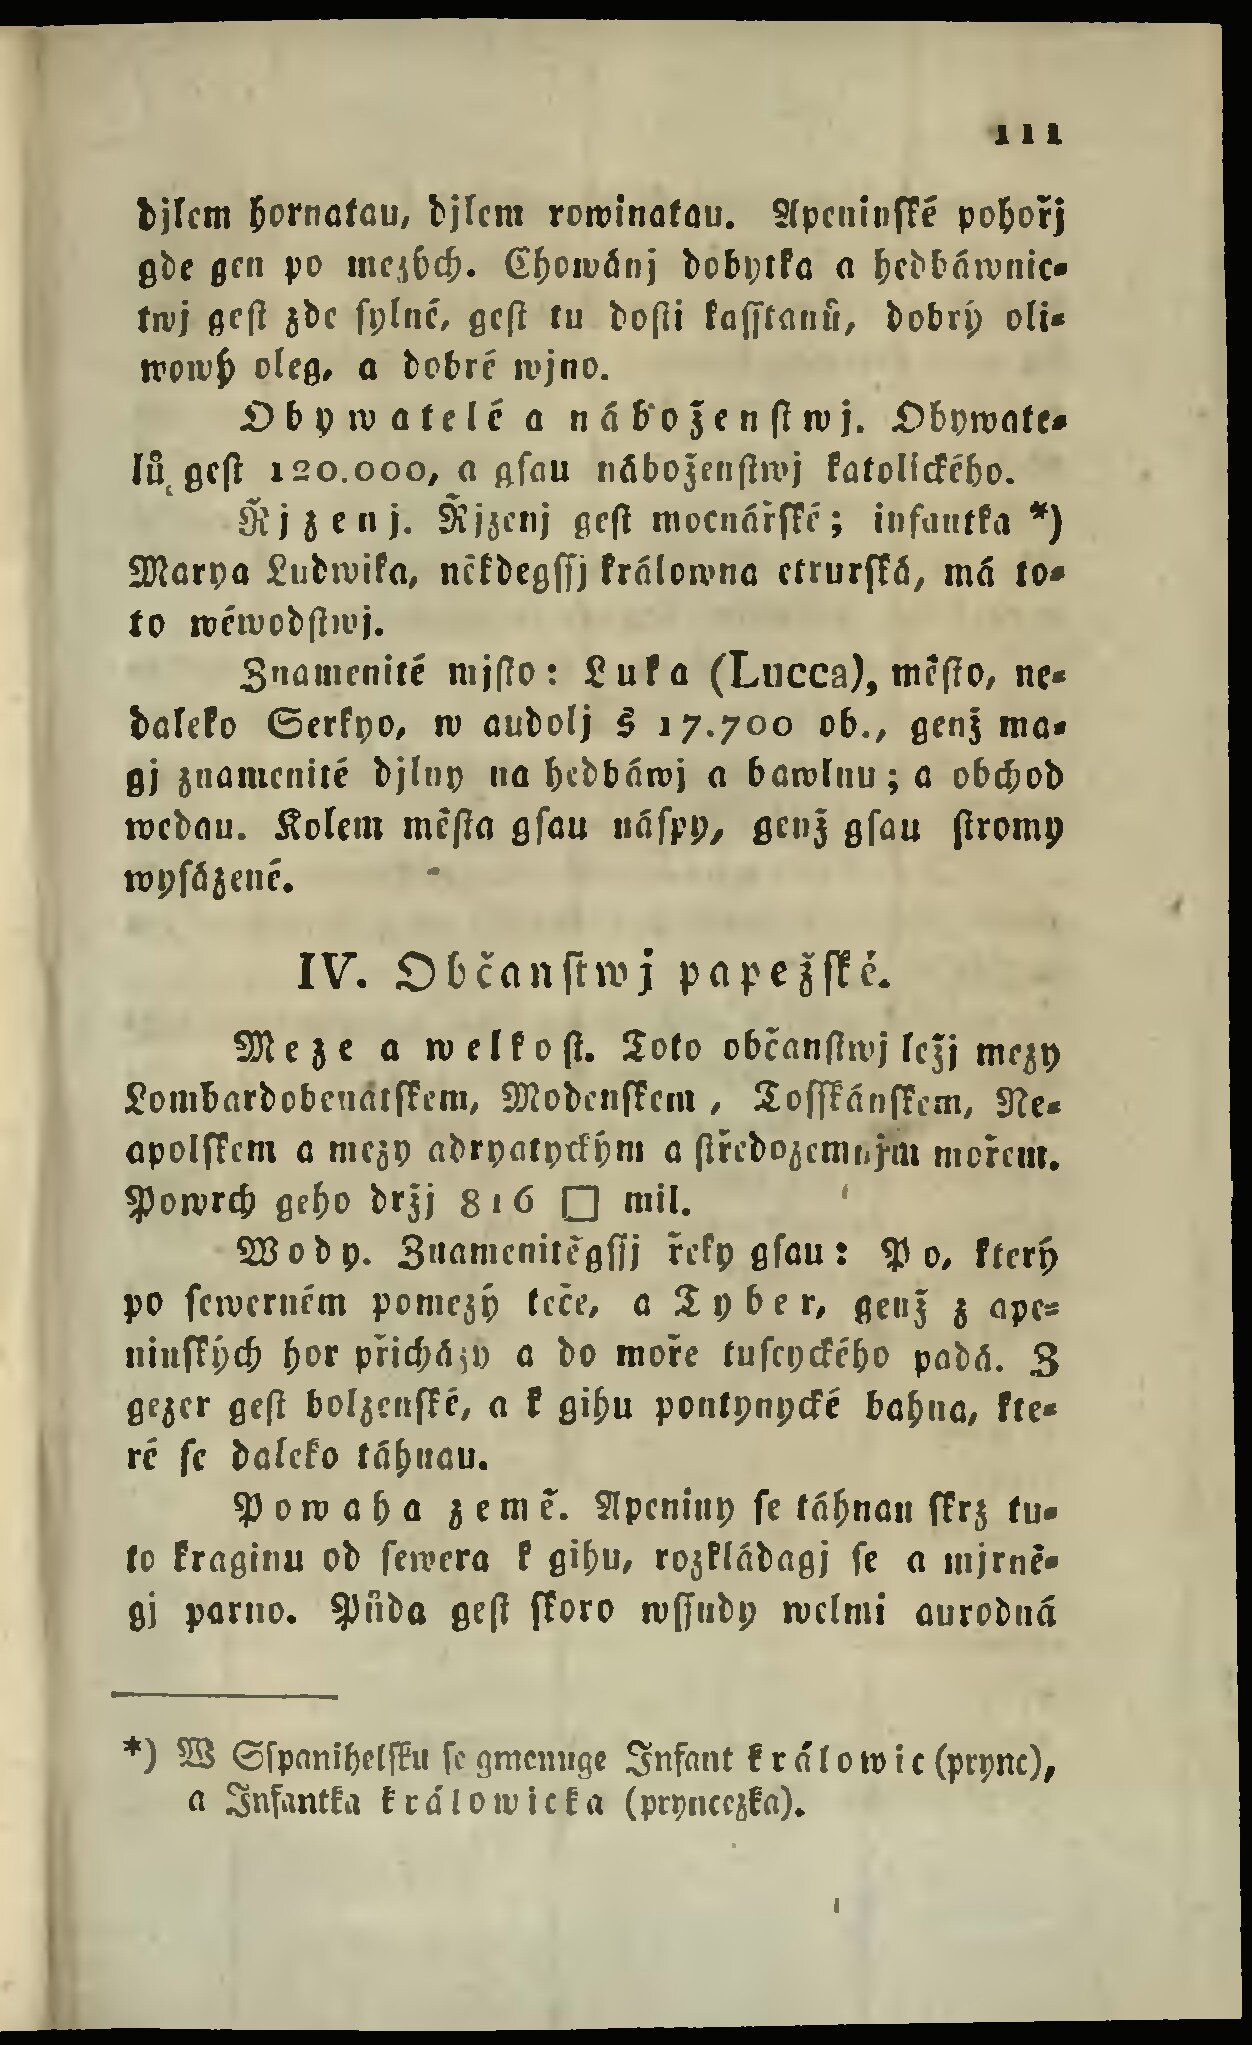 111
djlem hornatau, djlem rowinatau. Apeninſké pohořj
gde gen po mezých. Chowánj dobytka a hedbáwnic-
twj geſt zde ſylné, geſt tu doſti kaſſtanů, dobrý oli-
wowý oleg, a dobré wjno.
Obywatelé a náboženſtwj. Obywate-
lů geſt 120.000, a gſau náboženſtwj katolického.
Řjzenj. Řjzenj geſt mocnářſké; infantka *)
Marya Ludwika, někdegſſj králowna etrurſká, má to-
to wéwodſtwj.
Znamenité mjſto: Luka (Lucca), měſto, ne-
daleko Serkyo, w audolj s 17.700 ob., genž ma-
gj znamenité djlny na hedbáwj a bawlnu; a obchod
wedau. Kolem měſta gſau náſpy, genž gſau ſtromy
wyſázené.
IV. Občanſtwj papežſké.
Meze a welkoſt. Toto občanſtwj ležj mezy
Lombardobenátſkem, Modenſkem, Toſſkánſkem, Ne-
apolſkem a mezy adryatyckým a ſtředozemnjm mořem.
Powrch geho držj 816 □ mil.
Wody. Znamenitěgſſj řeky gſau: Po, který
po ſewerném pomezý teče, a Tyber, genž z ape-
ninſkých hor přicházy a do moře tuſcyckého padá. Z
gezer geſt bolzenſké, a k gihu pontynycké bahna, kte-
ré ſe daleko táhnau.
Powaha země. Apeniny ſe táhnau ſkrz tu-
to kraginu od ſewera k gihu, rozkládagj ſe a mjrně-
gj parno. Půda geſt ſkoro wſſudy welmi aurodná
*) W Sſpanihelſku ſe gmenuge Infant králowic (prync),
a Infantka králowicka (pryncezka).